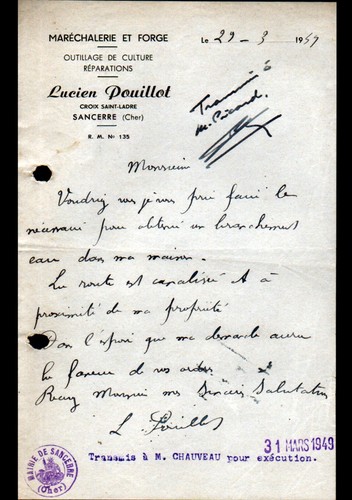 MARÉCHALERIE ET FORGE
OUTILLAGE DE CULTURE
RÉPARATIONS
Lucien Pouillot
CROIX SAINT-LADRE
SANCERRE (Cher)
R. M. Nº 135
Le 29 - 3 1949
Transmis à
M. Picard.
Monsieur
Voudriez vous je vous prie faire le
nécessaire pour obtenir un branchement
eau dans ma maison.
La route est canalisée à
proximité de ma propriété
Dans l'espoir que ma demande aura
la faveur de vos ordres
Recevez Monsieur mes Sincères Salutations
L Pouillot
31 MARS 1949
Transmis à M. CHAUVEAU pour exécution.
MAIRIE DE SANCERRE
(Cher)